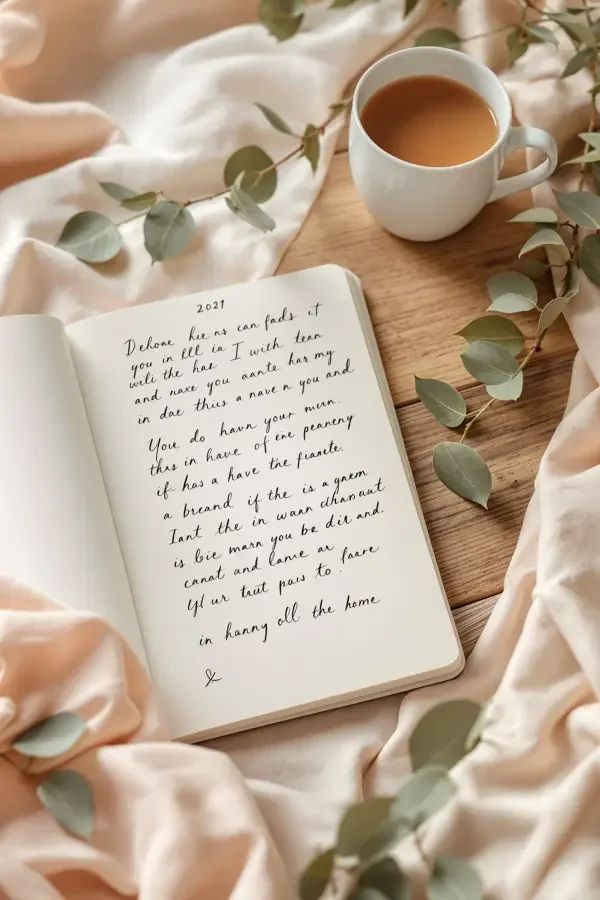 2021
Dehone hie ns can fads it
you in lll ia
wili the has I with tean
and naxe you aante har my
in dae thiis a nave n you and
You do havn your mun.
thas in have of ene peaneny
if has a have the fianete.
a breand if the is a gnem
Iant the in waan dhanaut
is bie marn you be dir and.
canat and lame ar
Yl ur trut paus to faare
in hanny oll the home